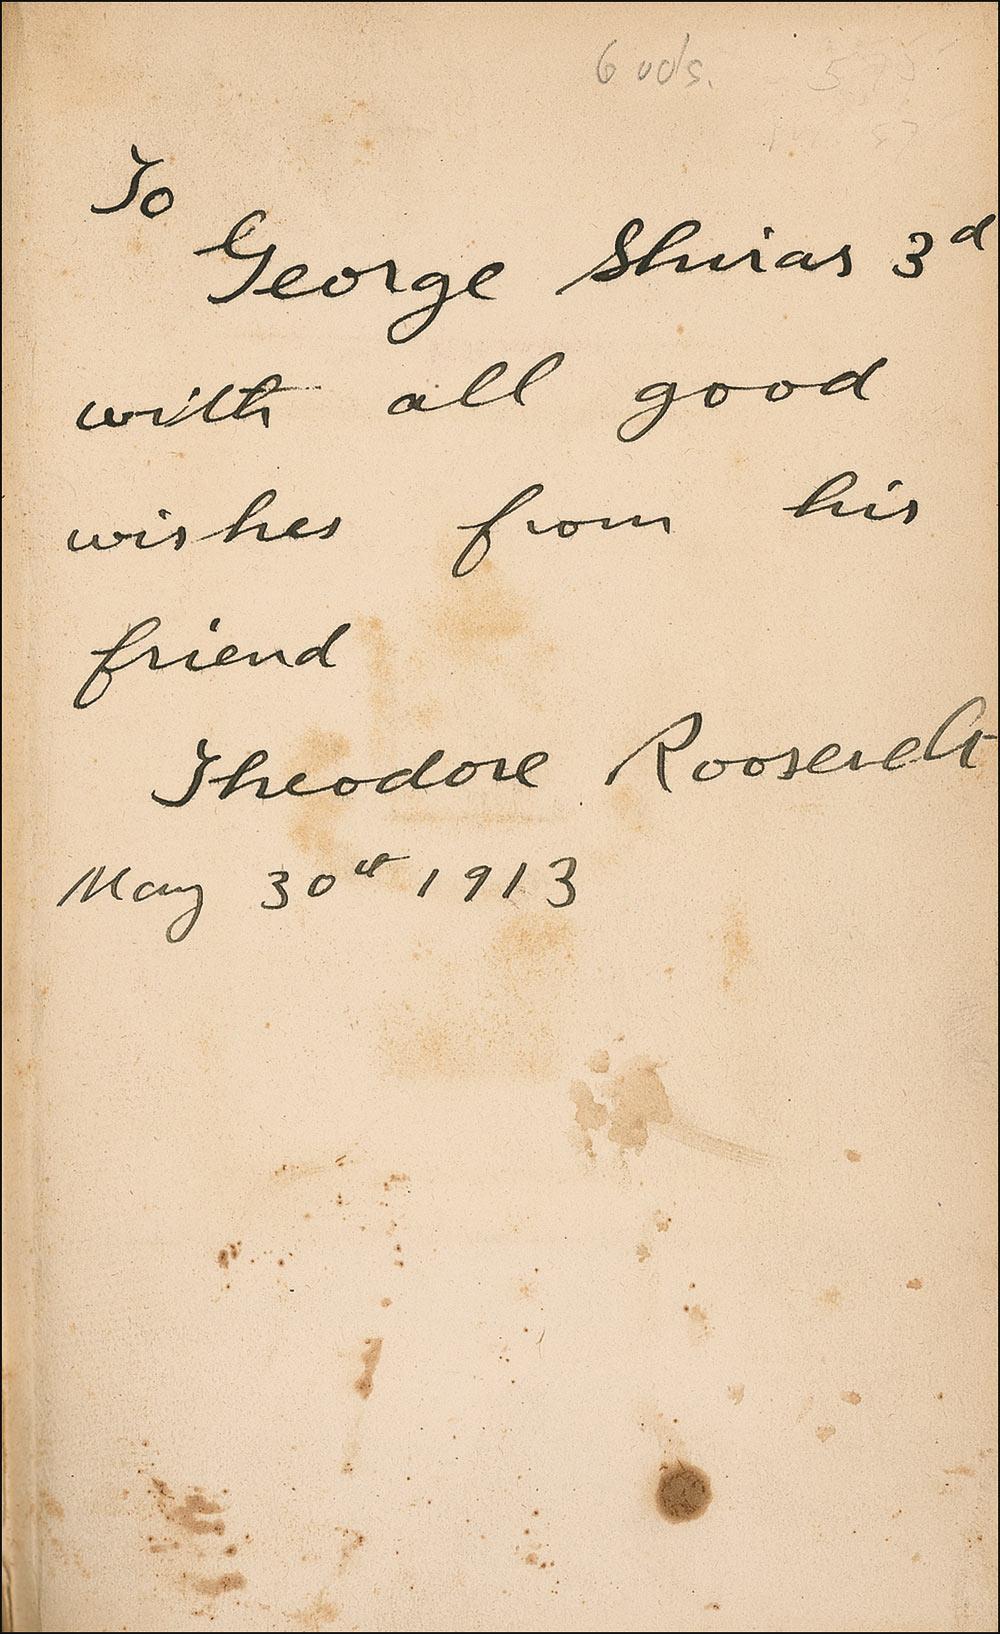 6 vols.
To
George Shiras 3d
with all good
wishes from his
friend
Theodore Roosevelt
May 30th 1913